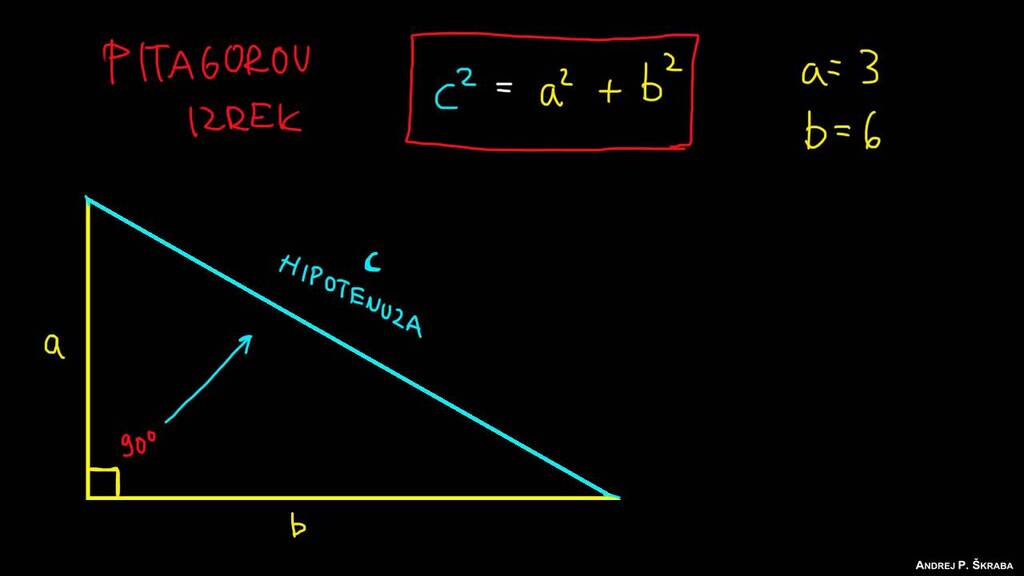 PITAGOROV
IZREK
c² = a² + b²
a = 3
b = 6
c
HIPOTENUZA
a
90°
b
ANDREJ P. ŠKRABA